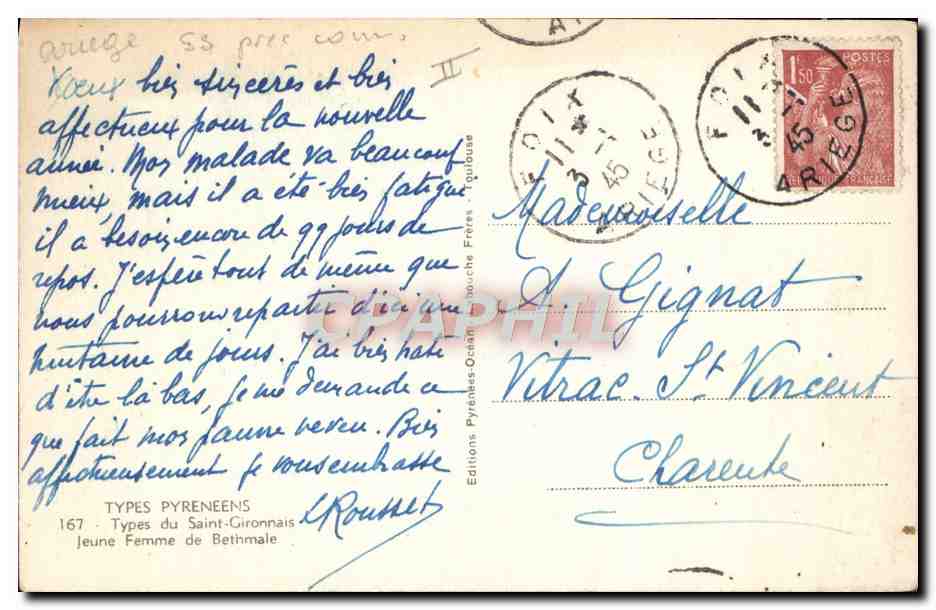 ariege 55 pres com.
II
Voeux bien sincères et bien
affectueux pour la nouvelle
année. Mon malade va beaucoup
mieux, mais il a été bien fatigué
il a besoin encore de qq jours de
repos. J'espère tout de même que
nous pourrons repartir d'ici une
huitaine de jours. J'ai bien hâte
d'être là bas, je me demande ce
que fait mon pauvre neveu. Bien
affectueusement je vous embrasse
LRousset
TYPES PYRENEENS
167 - Types du Saint-Gironnais
Jeune Femme de Bethmale
Editions Pyrénées-Océan Labouche Frères - Toulouse
FOIX
11 *
3 -1
45
ARIEGE
FOIX
11 *
3 -1
45
ARIEGE
POSTES
1F50
Française
Mademoiselle
A. Gignat
Vitrac. St Vincent
Charente
CPAPHIL